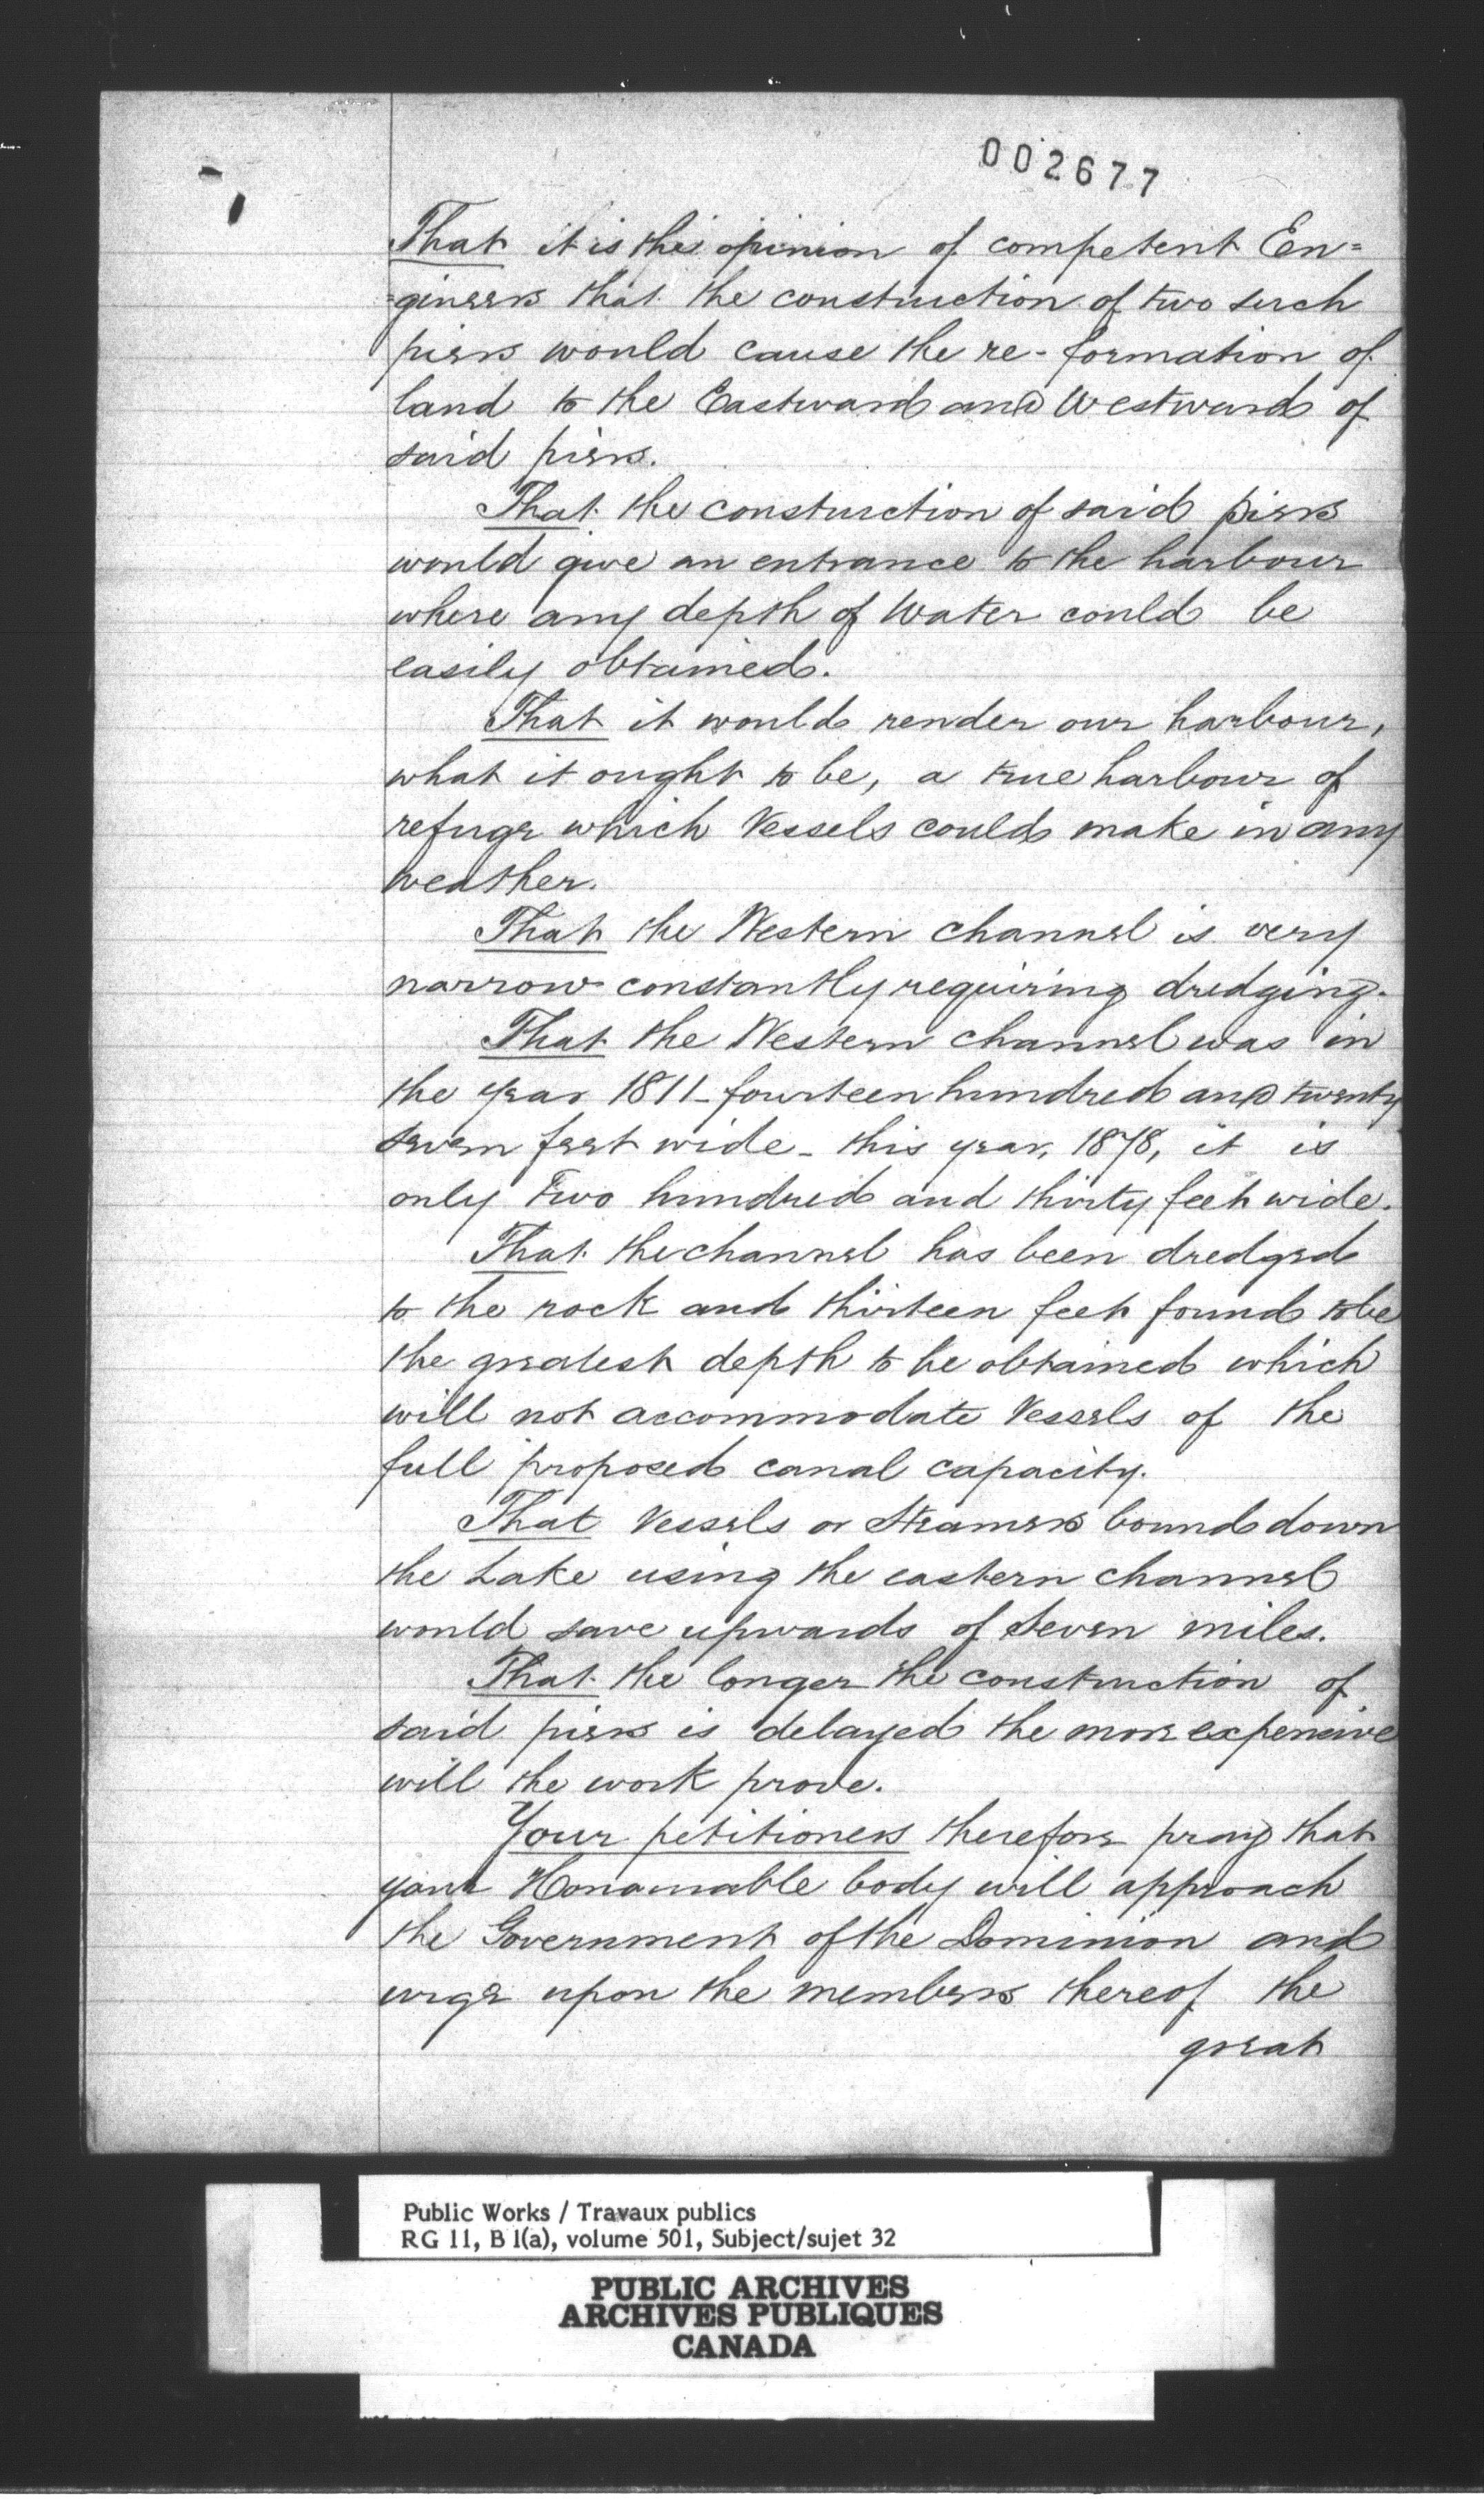 002677
That it is the opinion of competent En=
=gineers that the construction of two such
piers would cause the re-formation of
land to the Eastward and Westward of
said piers.
That the construction of said piers
would give an entrance to the harbour
where any depth of Water could be
easily obtained.
That it would render our harbour,
what it ought to be, a true harbour of
refuge which Vessels could make in any
weather.
That the Western channel is very
narrow constantly requiring dredging.
That the Western channel was in
the year 1811 - fourteen hundred and twenty
seven feet wide - this year, 1878, it is
only Two hundred and thirty feet wide.
That the channel has been dredged
to the rock and thirteen feet found to be
the greatest depth to be obtained which
will not accommodate Vessels of the
full proposed canal capacity.
That Vessels or Steamers bound down
the Lake using the eastern channel
would save upwards of Seven miles.
That the longer the construction of
said piers is delayed the more expensive
will the work prove.
Your petitioners therefore pray that
your Honourable body will approach
the Government of the Dominion and
urge upon the members thereof the
great
Public Works / Travaux publics
RG 11, B 1(a), volume 501, Subject/sujet 32
PUBLIC ARCHIVES
ARCHIVES PUBLIQUES
CANADA